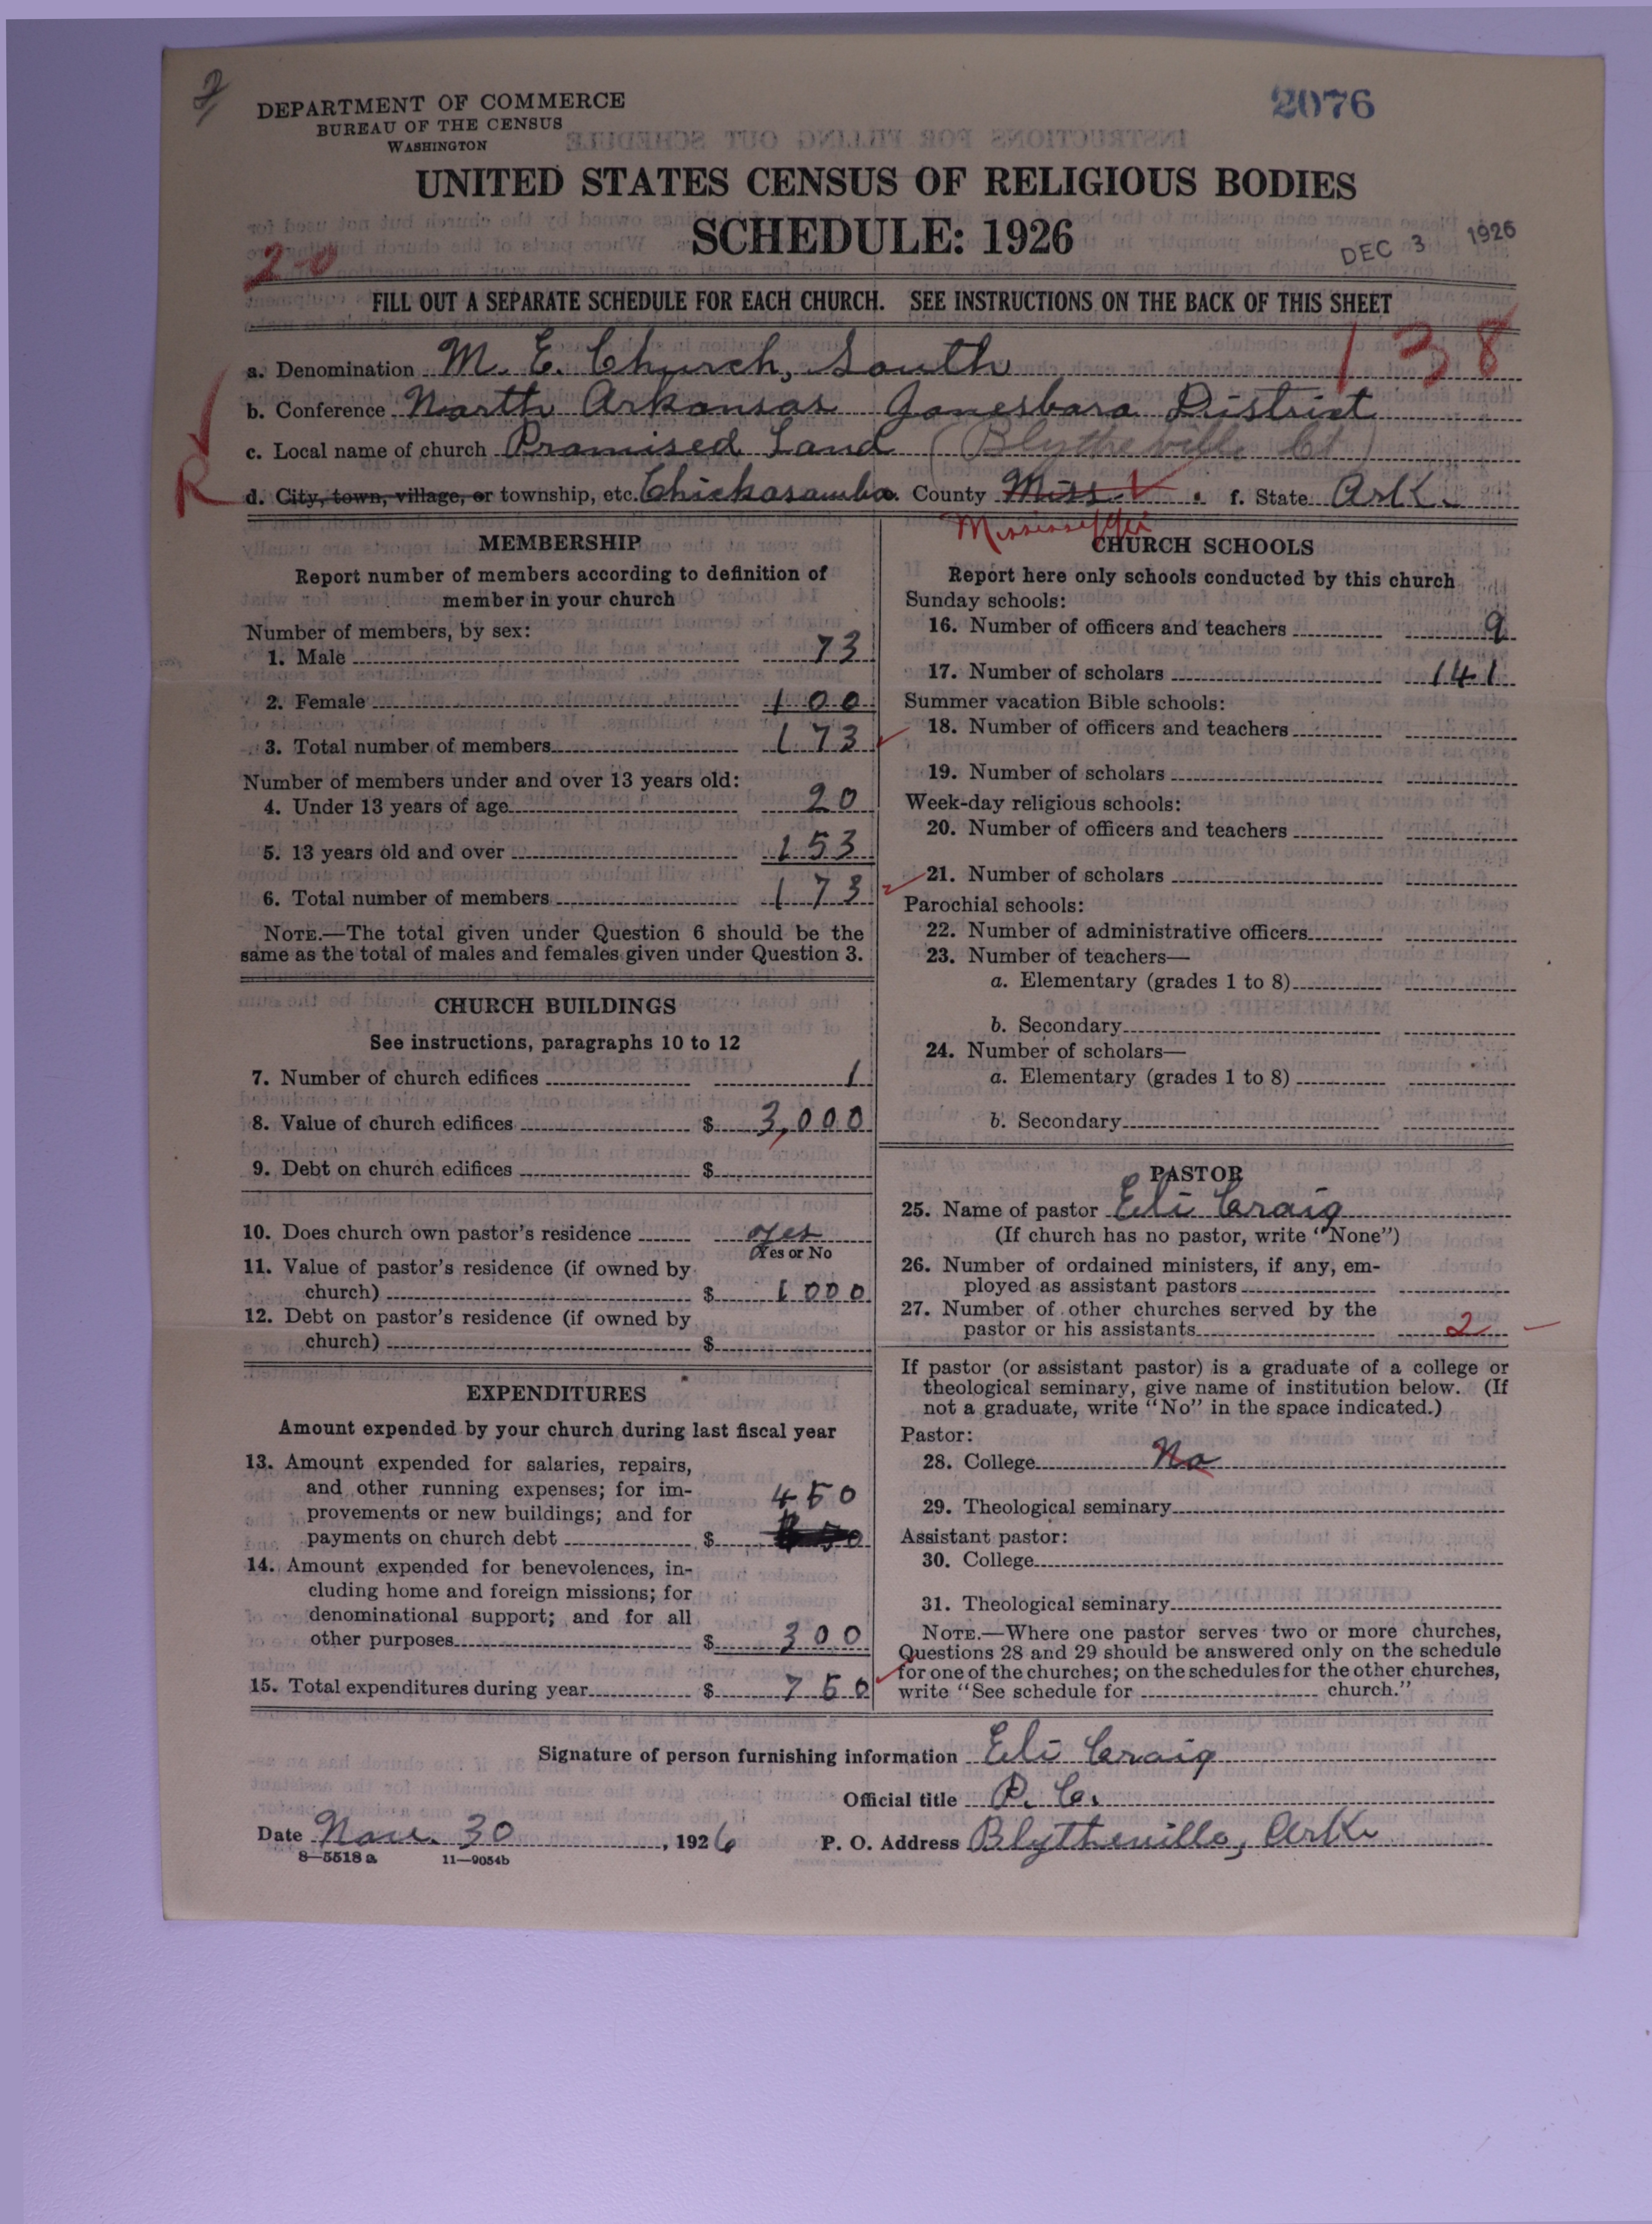 2
DEPARTMENT OF COMMERCE
BUREAU OF THE CENSUS
WASHINGTON
2076
UNITED STATES CENSUS OF RELIGIOUS BODIES
SCHEDULE: 1926
DEC 3 1926
2-0
FILL OUT A SEPARATE SCHEDULE FOR EACH CHURCH. SEE INSTRUCTIONS ON THE BACK OF THIS SHEET
138
a. Denomination M. E. Church, South
b. Conference North Arkansas Jonesboro District
c. Local name of church Promised Land (Blytheville Ct)
R d. City, town, village, or township, etc. Chickasawba. County Miss. f. State Ark.
Mississippi
MEMBERSHIP
Report number of members according to definition of
member in your church
Number of members, by sex:
1. Male 73
2. Female 100
3. Total number of members 173
Number of members under and over 13 years old:
4. Under 13 years of age 20
5. 13 years old and over 153
6. Total number of members 173
NOTE.—The total given under Question 6 should be the
same as the total of males and females given under Question 3.
CHURCH BUILDINGS
See instructions, paragraphs 10 to 12
7. Number of church edifices 1
8. Value of church edifices $ 3,000
9. Debt on church edifices $
10. Does church own pastor's residence yes
Yes or No
11. Value of pastor's residence (if owned by
church) $ 1000
12. Debt on pastor's residence (if owned by
church) $
EXPENDITURES
Amount expended by your church during last fiscal year
13. Amount expended for salaries, repairs,
and other running expenses; for im-
provements or new buildings; and for 450
payments on church debt $
14. Amount expended for benevolences, in-
cluding home and foreign missions; for
denominational support; and for all
other purposes $ 300
15. Total expenditures during year $ 750
CHURCH SCHOOLS
Report here only schools conducted by this church
Sunday schools:
16. Number of officers and teachers 9
17. Number of scholars 141
Summer vacation Bible schools:
18. Number of officers and teachers
19. Number of scholars
Week-day religious schools:
20. Number of officers and teachers
21. Number of scholars
Parochial schools:
22. Number of administrative officers
23. Number of teachers—
a. Elementary (grades 1 to 8)
b. Secondary
24. Number of scholars—
a. Elementary (grades 1 to 8)
b. Secondary
PASTOR
25. Name of pastor Eli Craig
(If church has no pastor, write "None")
26. Number of ordained ministers, if any, em-
ployed as assistant pastors
27. Number of other churches served by the
pastor or his assistants 2
If pastor (or assistant pastor) is a graduate of a college or
theological seminary, give name of institution below. (If
not a graduate, write "No" in the space indicated.)
Pastor:
28. College No
29. Theological seminary
Assistant pastor:
30. College
31. Theological seminary
NOTE.—Where one pastor serves two or more churches,
Questions 28 and 29 should be answered only on the schedule
for one of the churches; on the schedules for the other churches,
write "See schedule for church."
Signature of person furnishing information Eli Craig
Official title P. C.
Date Nov. 30, 1926 P. O. Address Blytheville, Ark.
8—5518 a 11—9054b